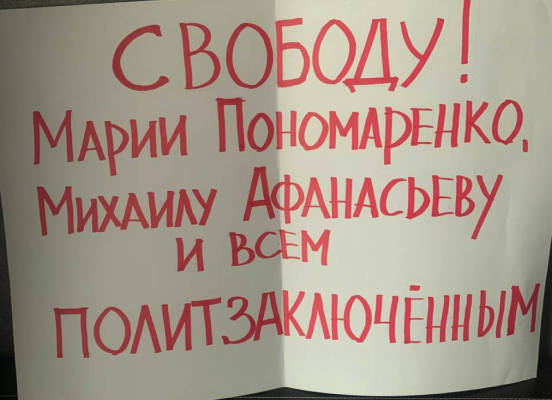 СВОБОДУ!
МАРИИ ПОНОМАРЕНКО,
МИХАИЛУ АФАНАСЬЕВУ
И ВСЕМ
ПОЛИТЗАКЛЮЧЁННЫМ